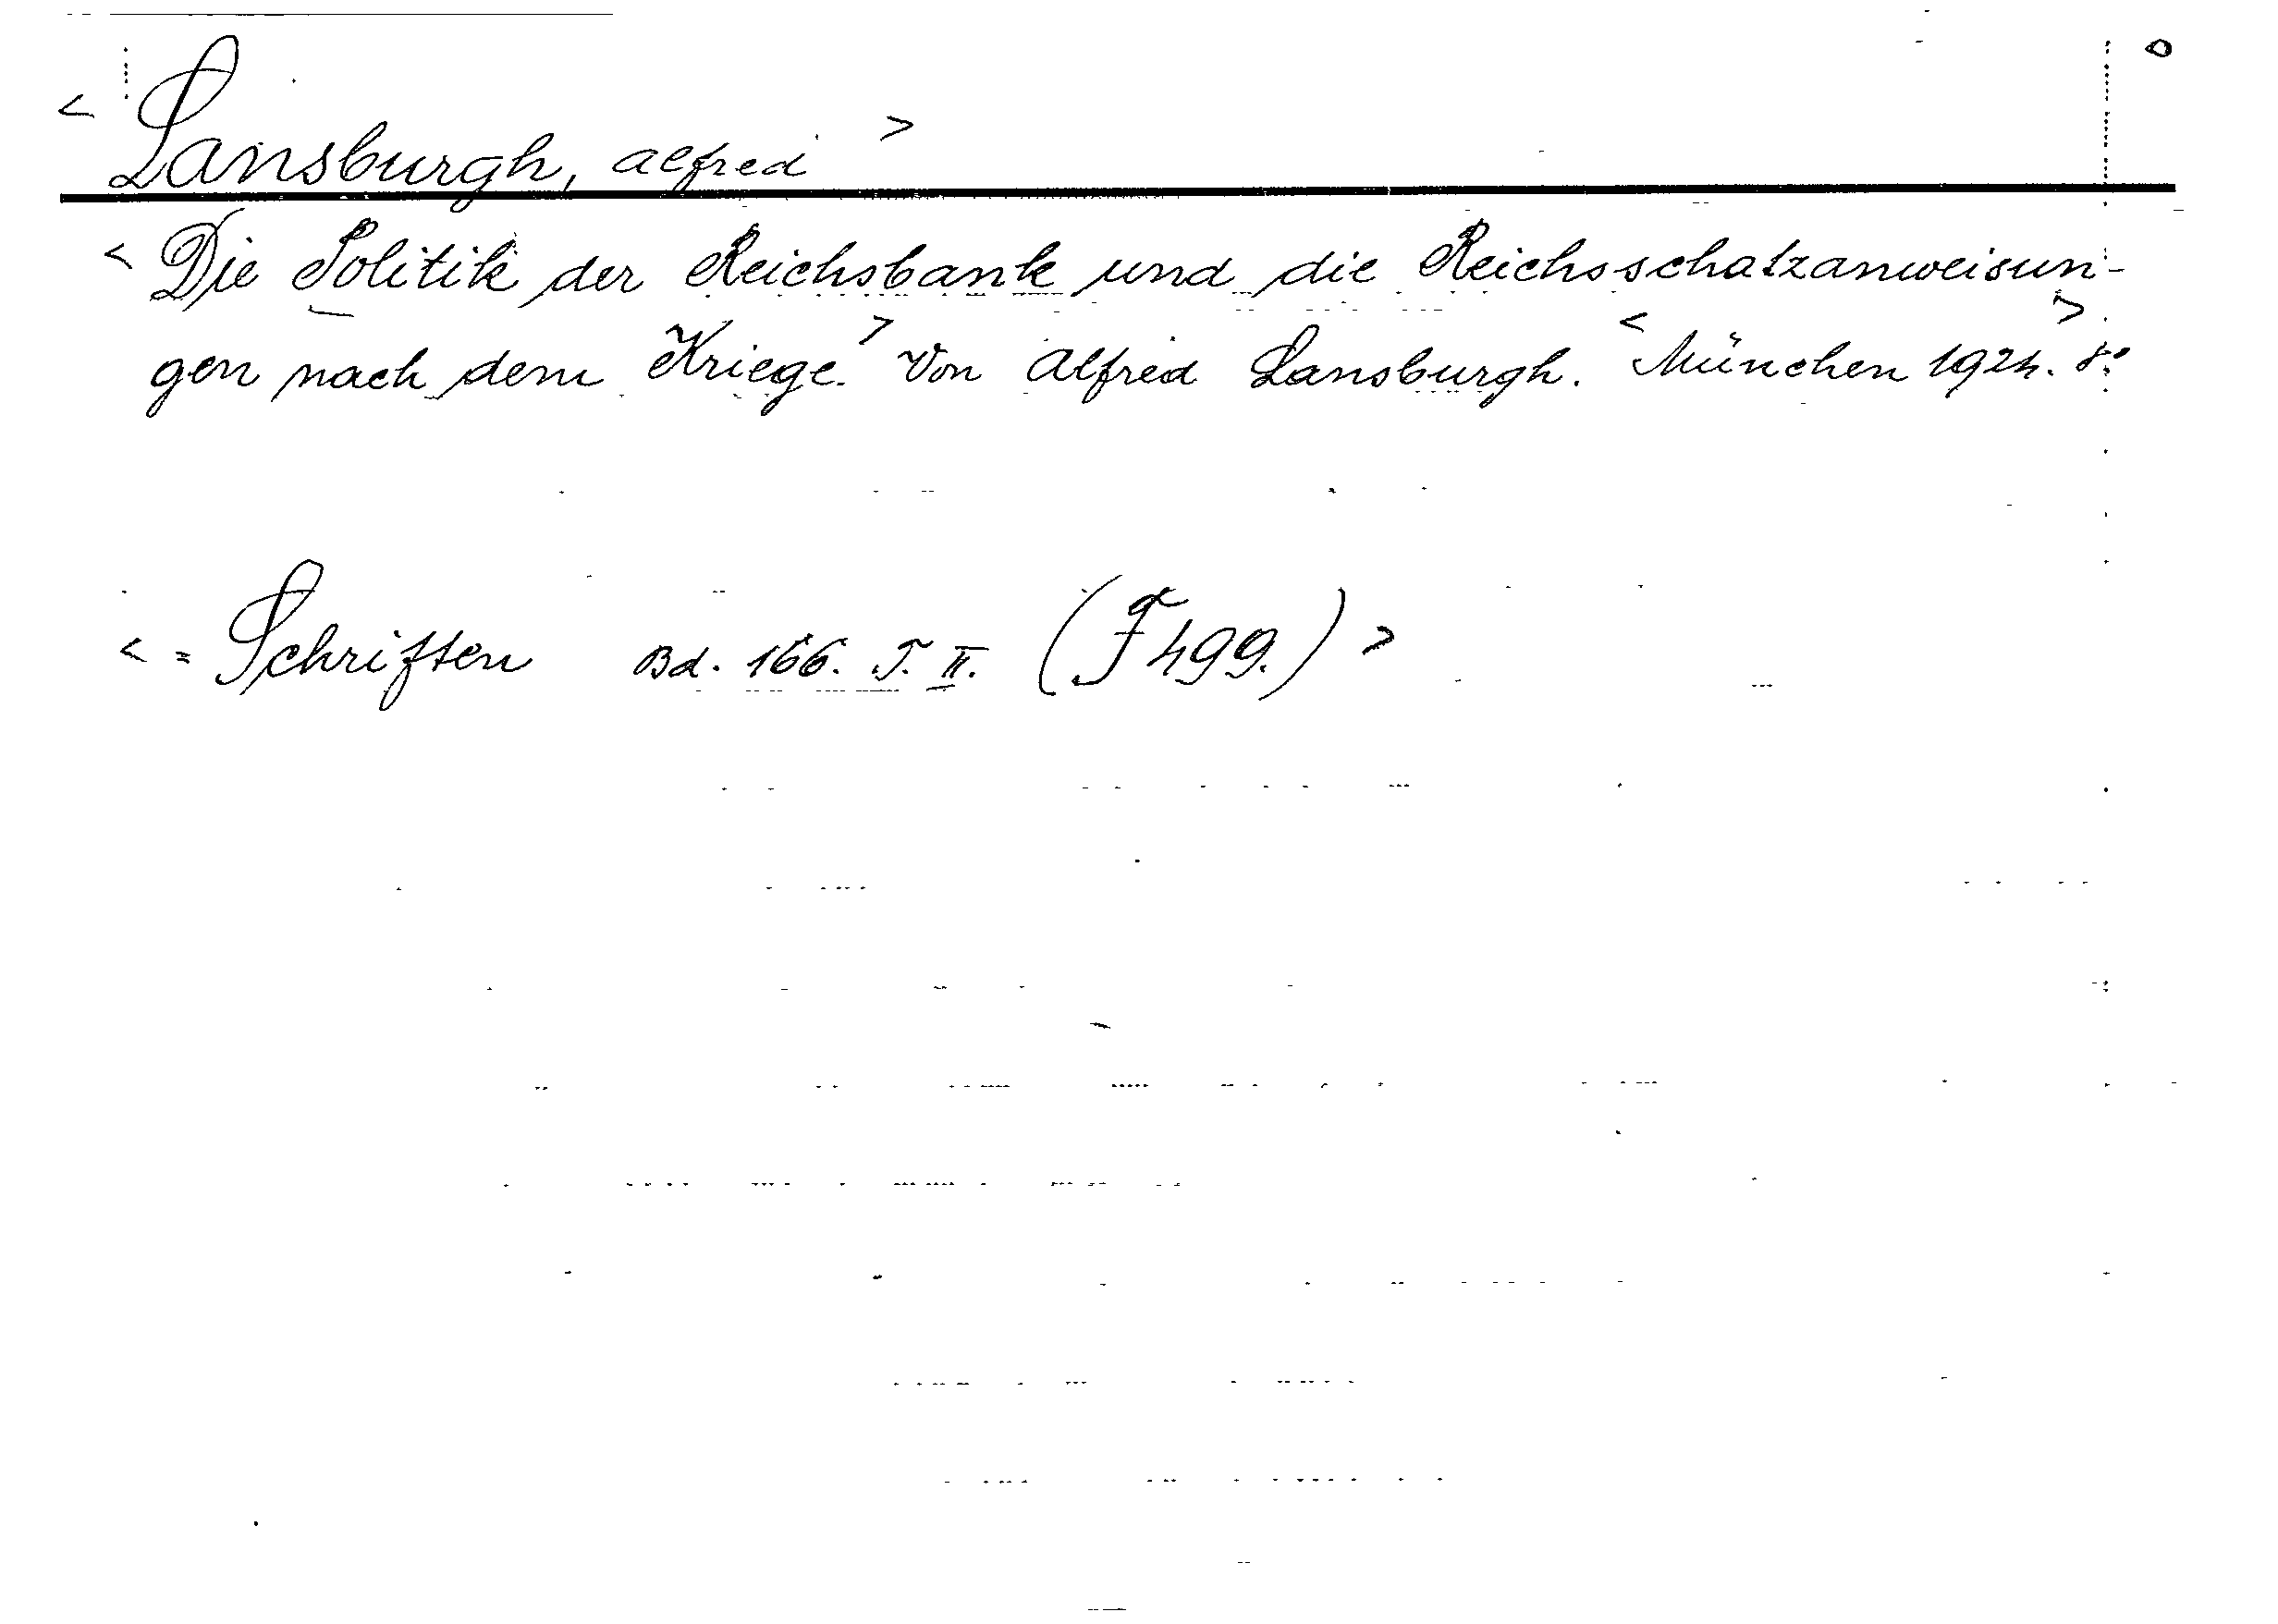 < Lansburgh, Alfred >
< Die Politik der Reichsbank und die Reichsschatzanweisun-
gen nach dem Kriege. > Von Alfred Lansburgh. < München 1924. > 8.°
< = Schriften Bd. 166. T. II. (F 499.) >